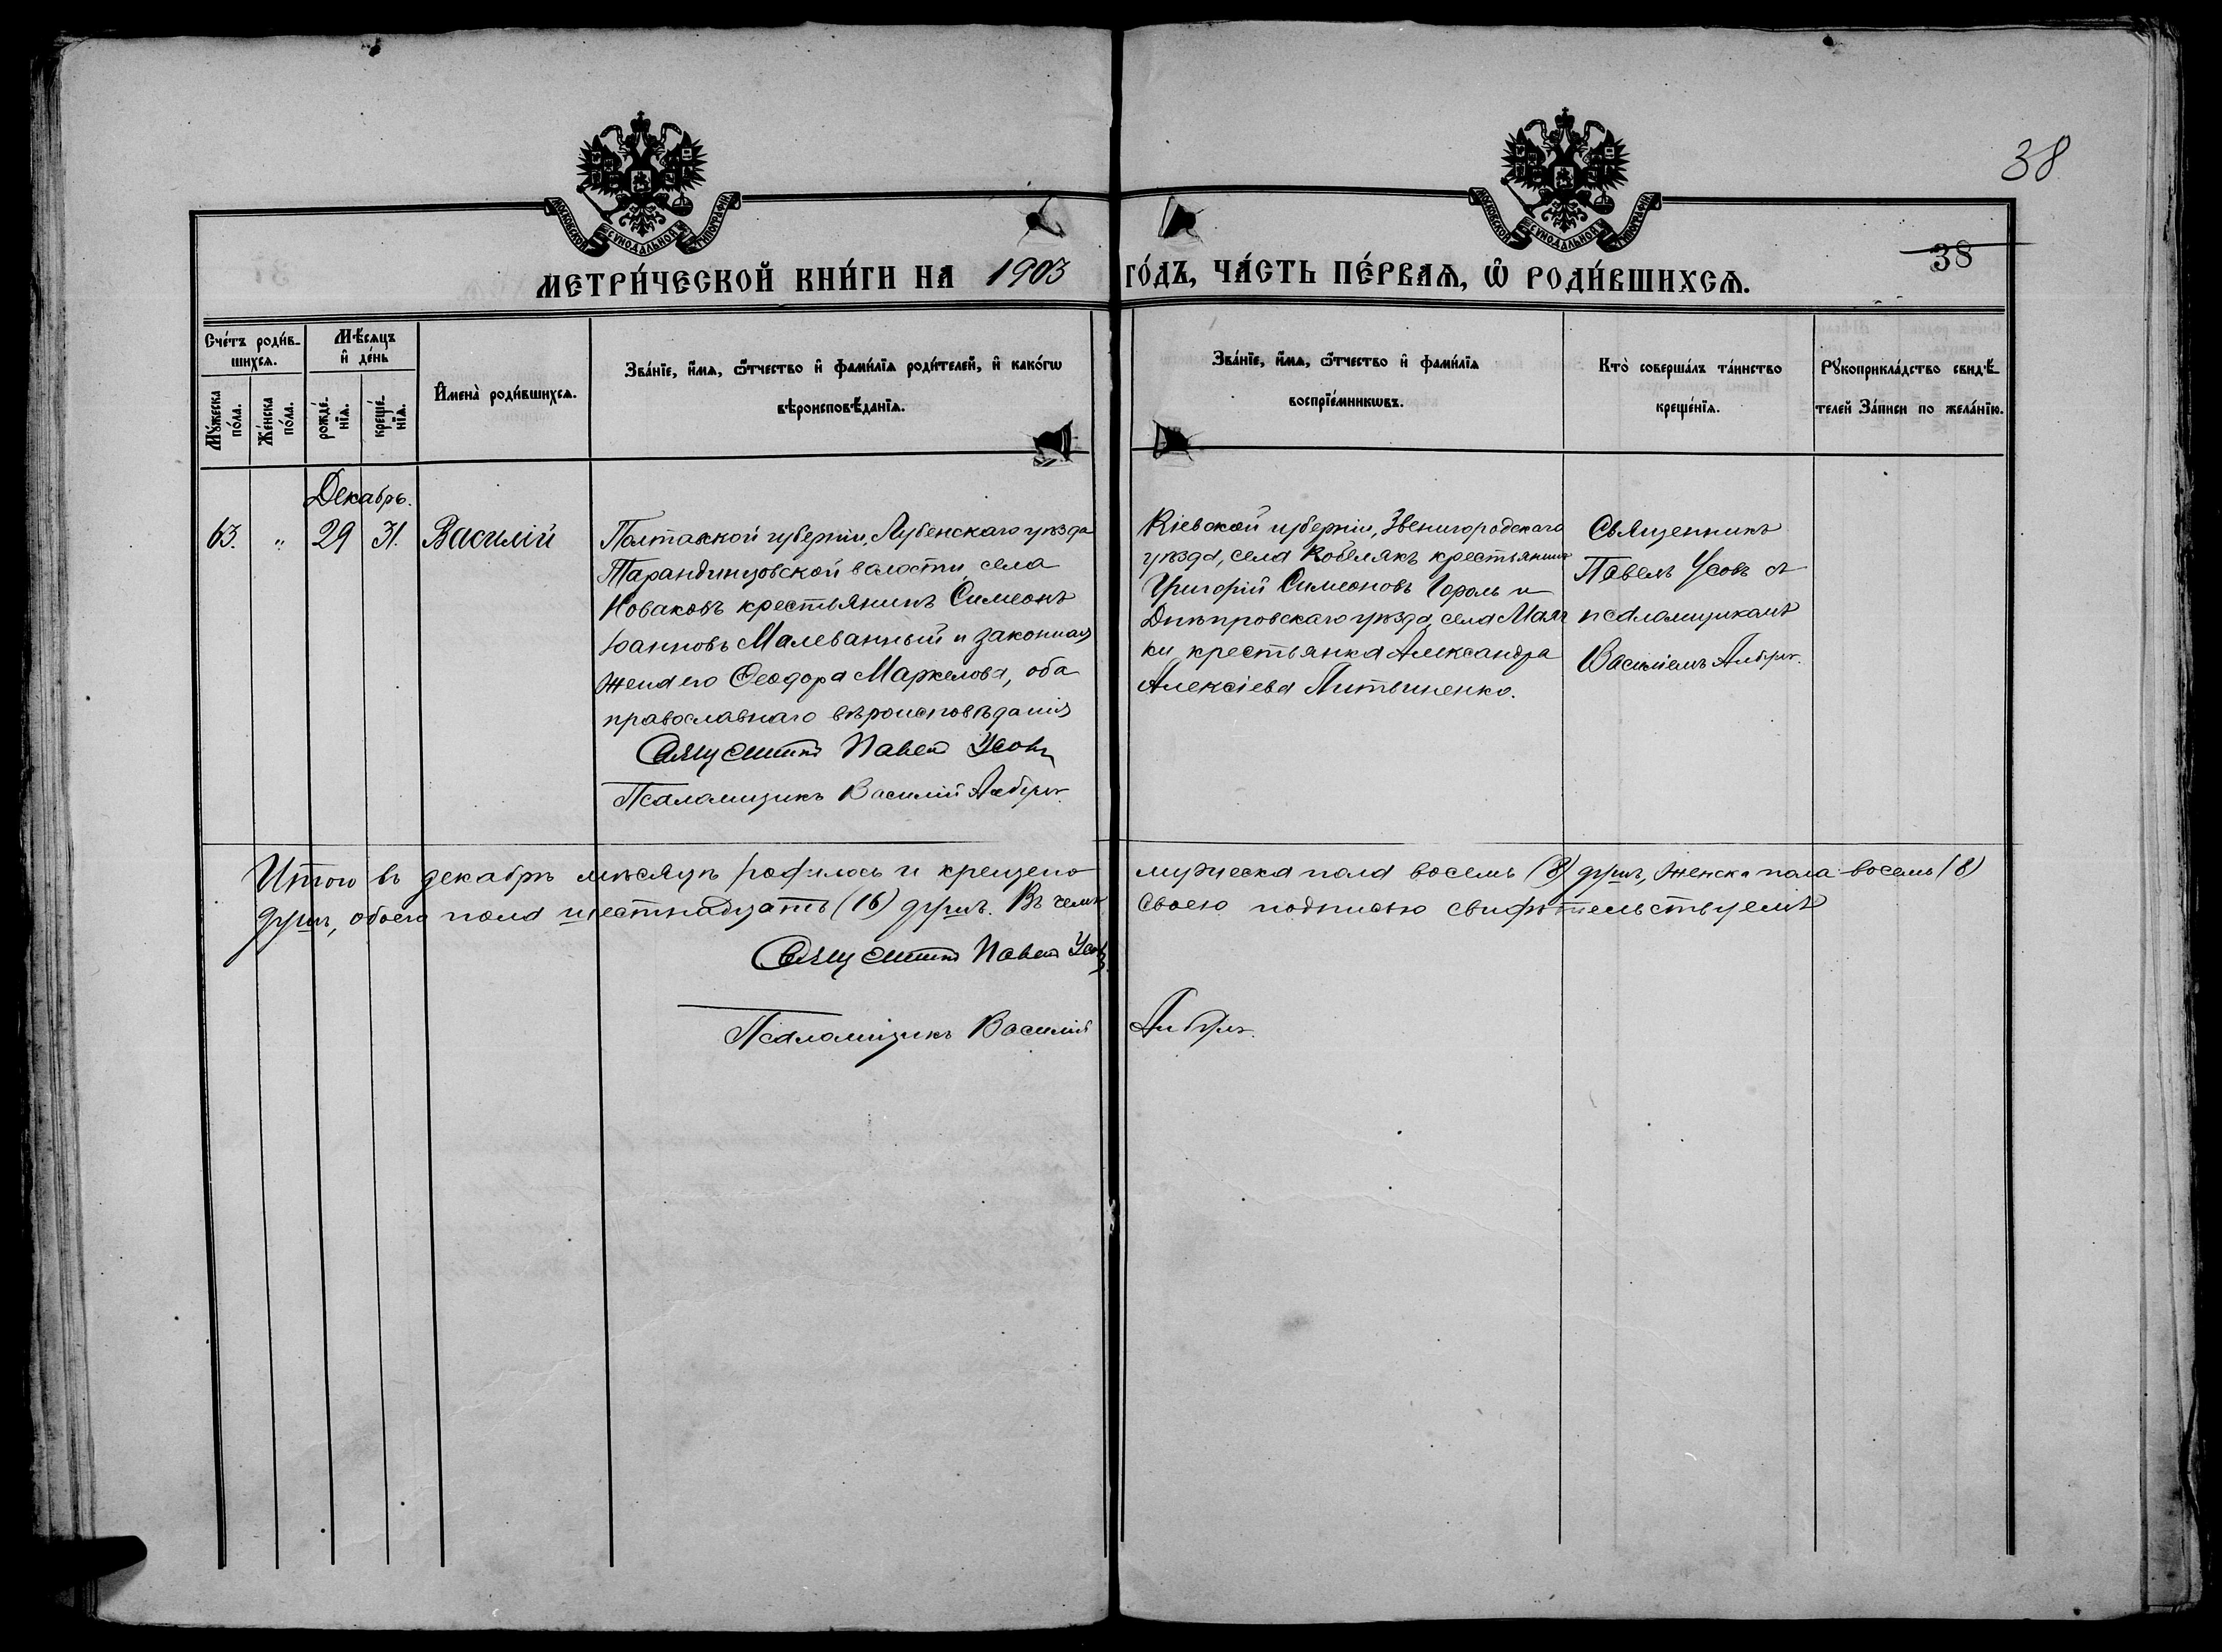 38
МОСКОВСКОЙ СУНОДАЛЬНОЙ ТИПОГРАФІИ
МОСКОВСКОЙ СУНОДАЛЬНОЙ ТИПОГРАФІИ
38
МЕТРИ́ЧЕСКОЙ КНИ́ГИ НА 1903 ГО́ДЪ, ЧА́СТЬ ПЕ́РВАѦ, Ѡ҃ РОДИ́ВШИХСѦ.
Сче́тъ роди́в-
шихсѧ.
Мꙋ́жеска
по́ла.
Же́нска
по́ла.
Мѣ́сѧцъ
и҆ де́нь
рожде́-
нїѧ.
креще́-
нїѧ.
И҆мена̀ роди́вшихсѧ.
Зва́нїе, и҆́мѧ, ѻ҆́тчество и҆ фами́лїѧ роди́телей, и҆ како́гѡ
вѣроисповѣ́данїѧ.
Зва́нїе, и҆́мѧ, ѻ҆́тчество и҆ фами́лїѧ
воспрїе́мникѡвъ.
Кто̀ соверша́лъ та́инство
креще́нїѧ.
Рꙋкоприкла́дство свидѣ́-
телей за́писи по жела́нїю.
Декабрь.
63. „ 29 31. Василій
Полтавской губерніи, Лубенскаго уѣзда
Тарандинцовской волости, села
Новаковъ крестьянинъ Симеонъ
Іоанновъ Малеванный и законная
жена его Ѳеодора Маркелова, оба
православнаго вѣроисповѣданія
Священникъ Павелъ Усовъ
Псаломщикъ Василій
Кіевской губерніи, Звенигородскаго
уѣзда, села Кобелякъ крестьянинъ
Григорій Симеоновъ Гороль и
Днѣпровскаго уѣзда, села Маяч
ки крестьянка Александра
Алексіева Литвиненко.
Священникъ
Павелъ Усовъ съ
псаломщикомъ
Василіемъ
Итого въ декабрѣ мѣсяцѣ родилось и крещено мужеска пола восемь (8) душъ, женска пола восемь (8)
душъ, обоего пола шестнадцать (16) душъ. Въ чемъ своею подписью свидѣтельствуемъ
Священникъ Павелъ Усовъ
Псаломщикъ Василій